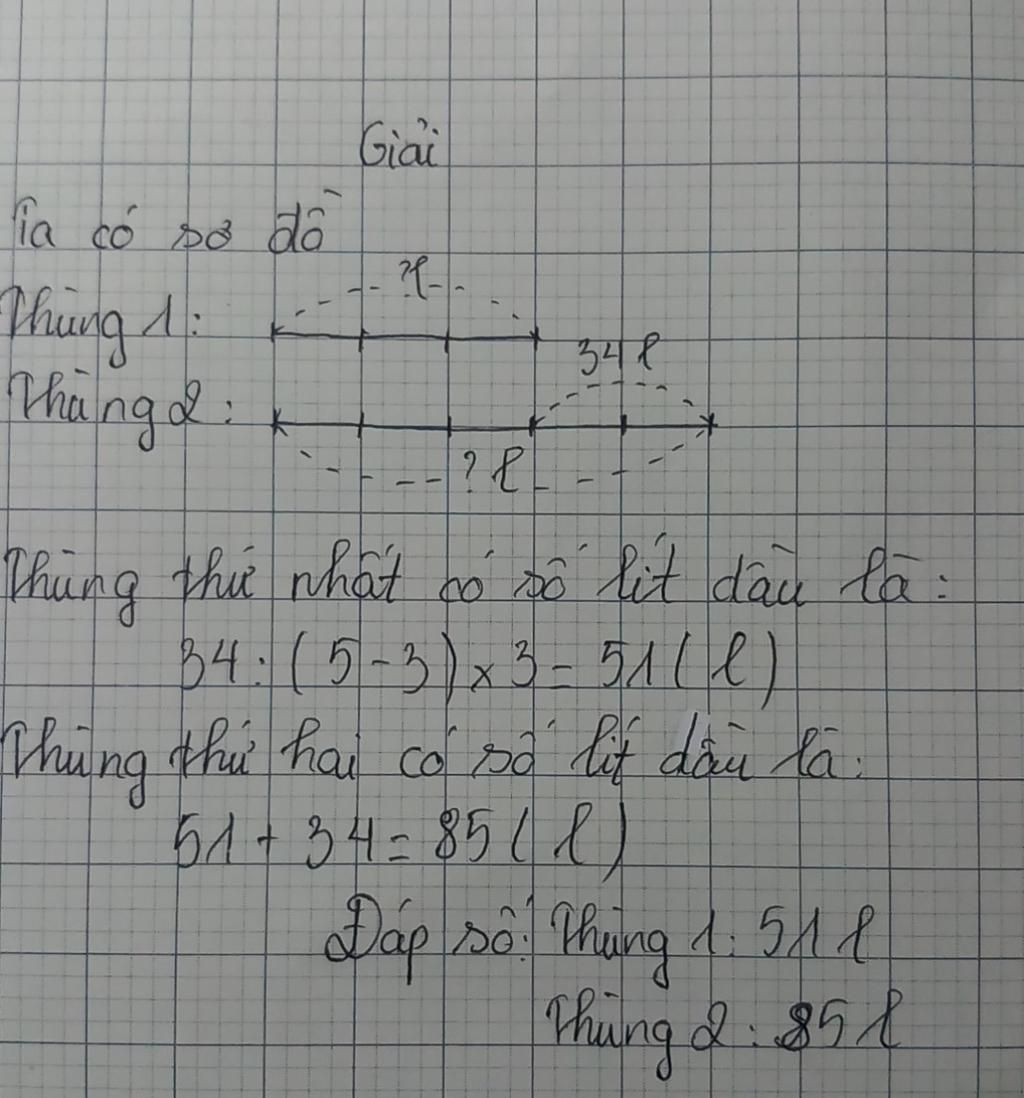 Giải
Ta có sơ đồ
?l
Thùng 1:
34 l
Thùng 2:
? l
Thùng thứ nhất có số lít dầu là:
34 : (5 - 3) x 3 = 51 ( l )
Thùng thứ hai có số lít dầu là:
51 + 34 = 85 ( l )
Đáp số: Thùng 1: 51 l
Thùng 2: 85 l